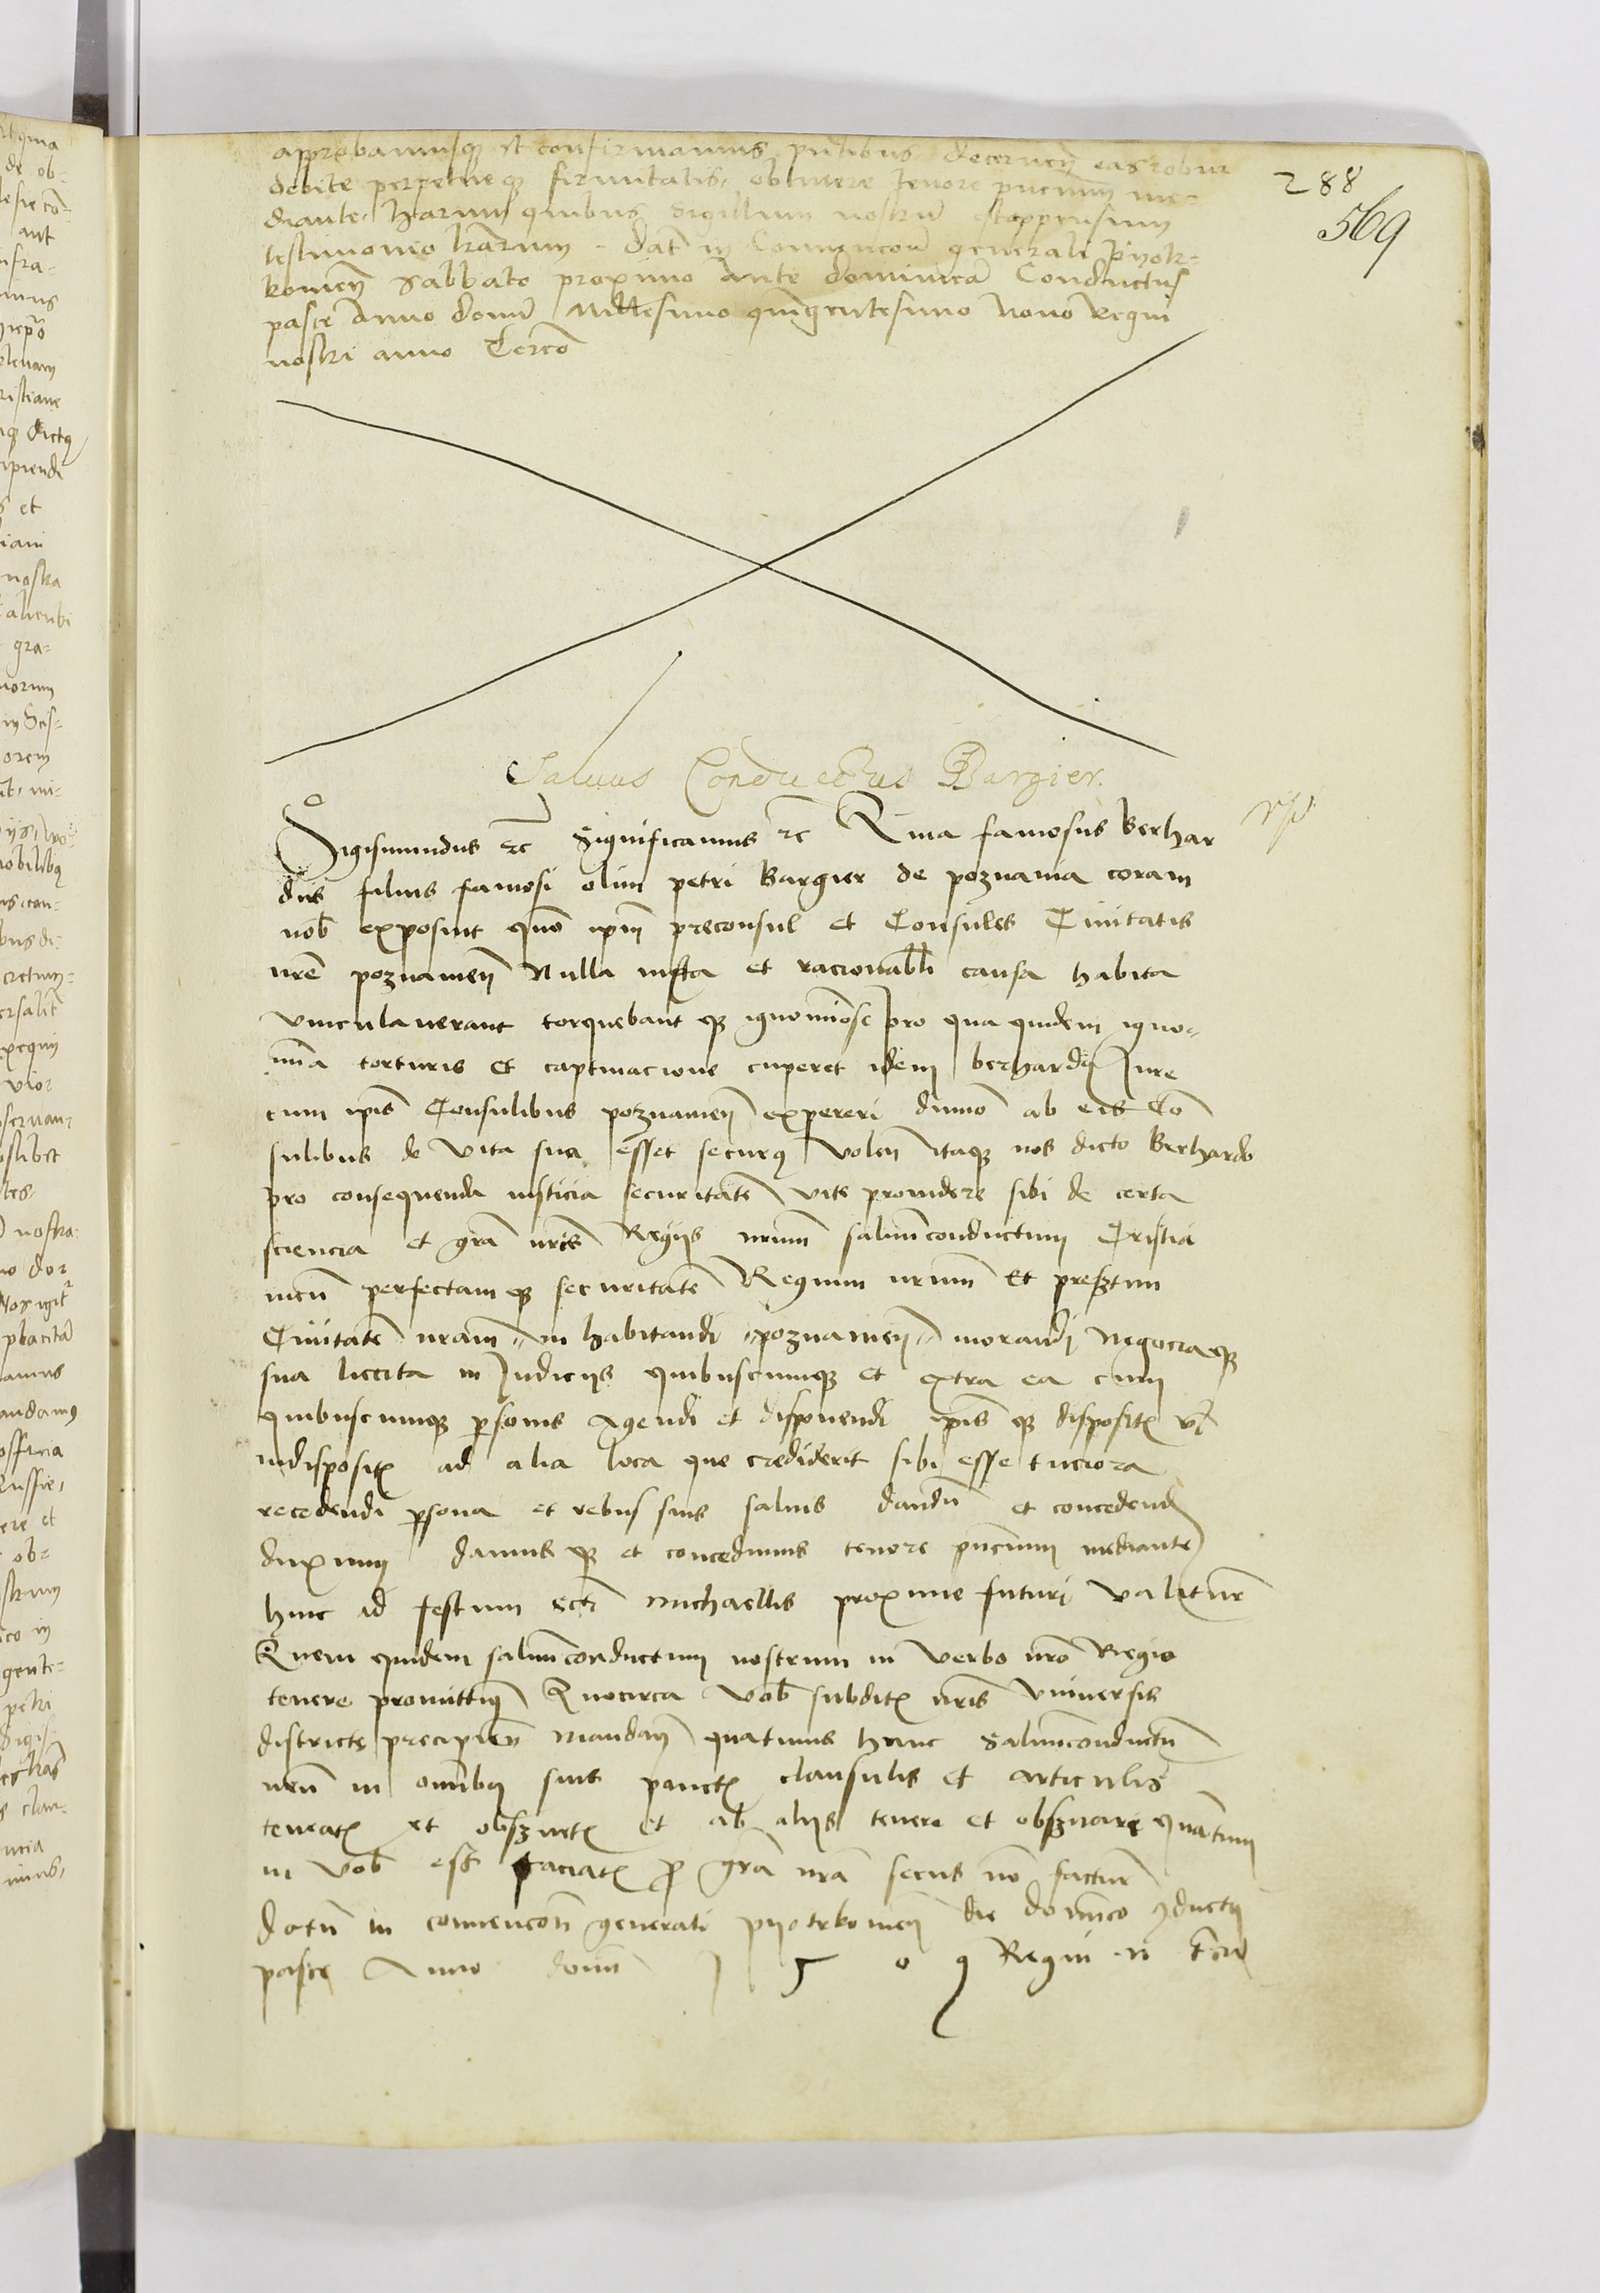 approbamusq et confirmamus pntibus decernen eas robur
debite perpetueq firmitatis obtinere tenore pncium me-
diante harum quibus sigillum nostru est appensum
testimonio lrarum. Dat in Convencione generali Pyotr-
komien Sabbato proximo ante dominica Conductus
pasce Anno domi Millesimo quingentesimo Nono Regni
nostri anno Tercio
288
569
Salvus Conductus Bargier.
Sigismundus etc Significamus etc Quia famosus Berhar
dus filius famosi olim petri Bargier de poznania coram
nob exposuit quo ipm preconsul et Consules Civitatis
nre poznanien Nulla iusta et racionabli causa habita
vinculaverant torquebant q ignominiose pro qua quidem igno-
mia torturis et captivacione cuperet idem berhardq Iure
cum ipis Consulibus poznanien experiri dumo ab eis Co
sulibus de vita sua esset securq volen itaq nos dicto Berhardo
pro consequenda iusticia securitate vite providere sibi de certa
sciencia et gra nris Regiis nrum salvuconductum Cristia
nicu perfectam q securitate Regnum nrum et presztim
Civitate nram in habitandi poznanien morandi negocia q
sua licita in Iudiciis quibuscumq et extra ea cum
quibuscumq psonis agendi et disponendi ipis q disposit vl
indisposit ad alia loca que crediderit sibi esse tuciora
recedendi psona et rebus suis salvis dandu et concedend
duximus damus q et concedimus tenore pncium mediante
hinc ad festum scti Michaelis proxime futuri valitur
Quem quidem salvuconductum nostrum in verbo nro Regio
tenere promittimq Quocirca vob subdit nris Universis
districte precipien mandan quatinus hunc Salvumconductu
nru in omibq suis punct clausulis et articulis
teneat et obszvet et ab aliis tenere et obszvare quatum
in vob est faciat p gra nra secus no factur
Datu in convencion generali pyotrkomien die domico conductq
pasce Anno domi 1509 Regni n tcio